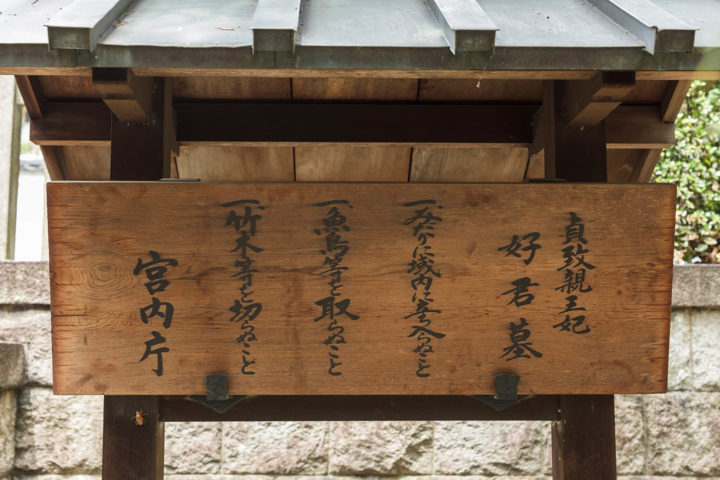 貞致親王妃
好君墓
一、みだりに域内に立入らぬこと
一、魚鳥等を取らぬこと
一、竹木等を切らぬこと
宮内庁